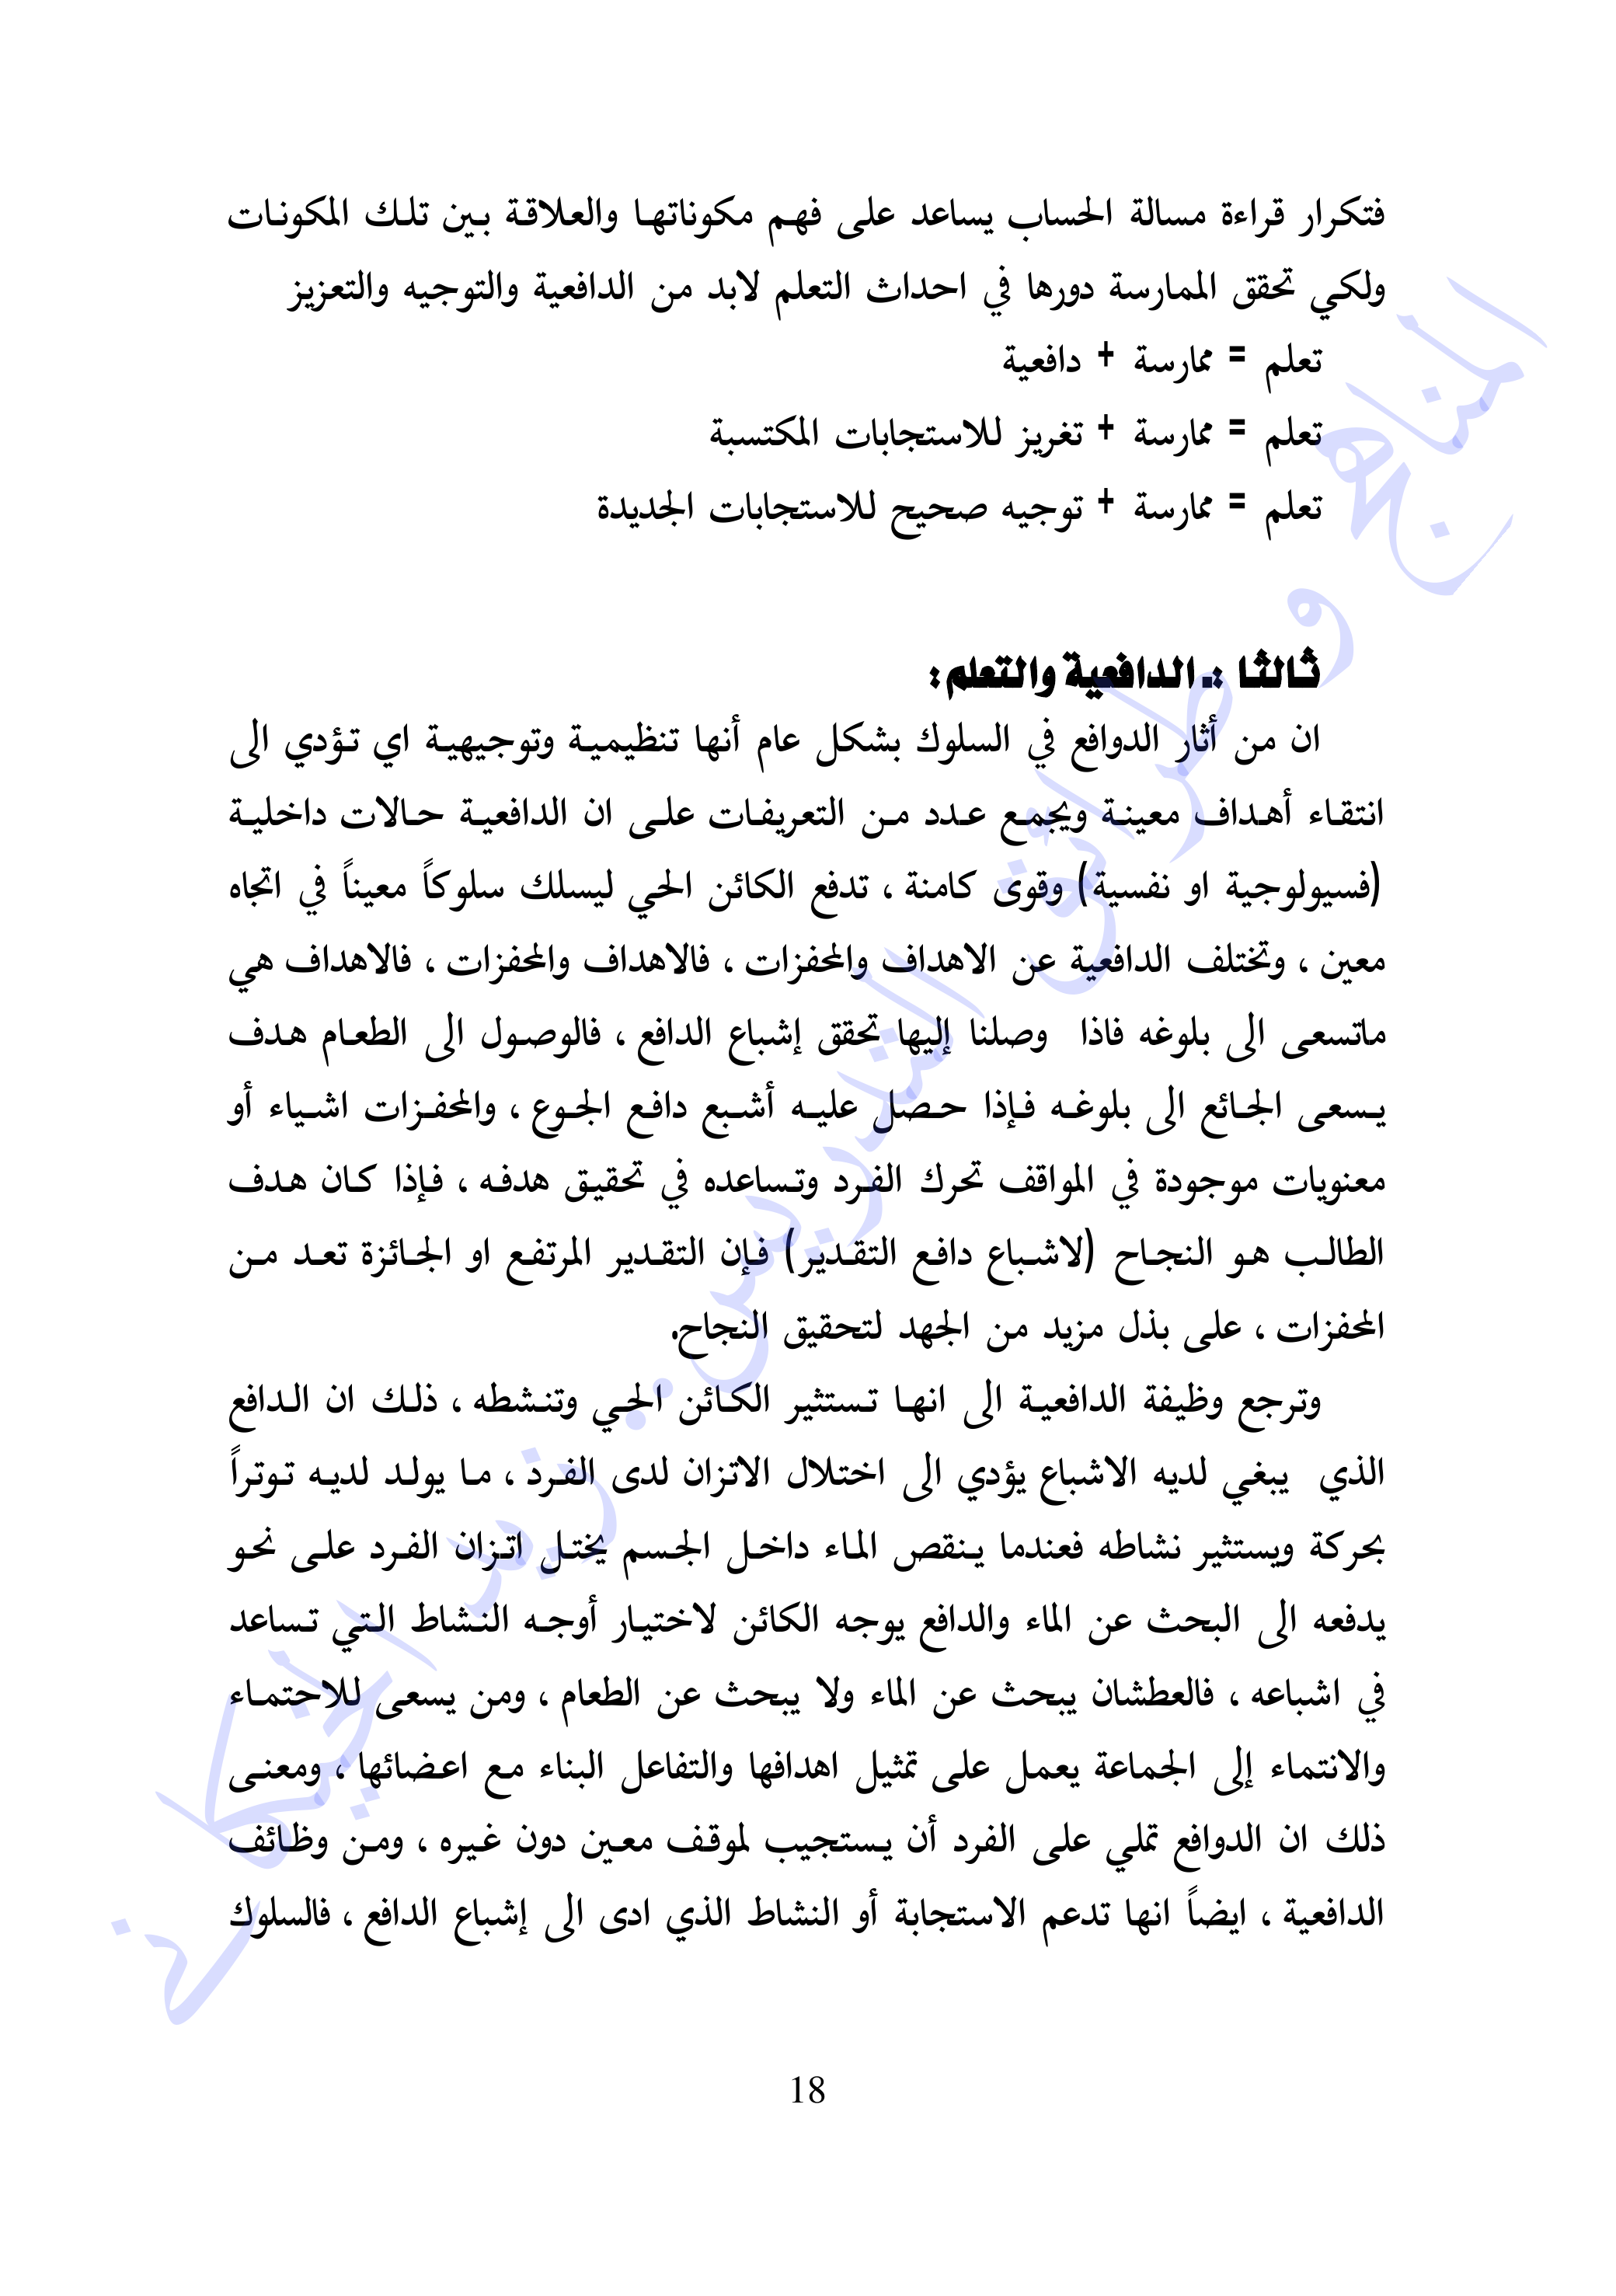 فتكرار قراءة مسالة الحساب يساعد على فهم مكوناتها والعلاقة بين تلك المكونات
ولكي تحقق الممارسة دورها في احداث التعلم لابد من الدافعية والتوجيه والتعزيز
تعلم = ممارسة + دافعية
تعلم = ممارسة + تغريز للاستجابات المكتسبة
تعلم = ممارسة + توجيه صحيح للاستجابات الجديدة
ثالثا :. الدافعية والتعلم :
ان من أثار الدوافع في السلوك بشكل عام أنها تنظيمية وتوجيهية اي تؤدي الى
انتقاء أهداف معينة ويجمع عدد من التعريفات على ان الدافعية حالات داخلية
(فسيولوجية او نفسية) وقوى كامنة ، تدفع الكائن الحي ليسلك سلوكاً معيناً في اتجاه
معين ، وتختلف الدافعية عن الاهداف والمحفزات ، فالاهداف والمحفزات ، فالاهداف هي
ماتسعى الى بلوغه فاذا وصلنا إليها تحقق إشباع الدافع ، فالوصول الى الطعام هدف
يسعى الجائع الى بلوغه فإذا حصل عليه أشبع دافع الجوع ، والمحفزات اشياء أو
معنويات موجودة في المواقف تحرك الفرد وتساعده في تحقيق هدفه ، فإذا كان هدف
الطالب هو النجاح (لاشباع دافع التقدير) فإن التقدير المرتفع او الجائزة تعد من
المحفزات ، على بذل مزيد من الجهد لتحقيق النجاح.
وترجع وظيفة الدافعية الى انها تستثير الكائن الحي وتنشطه ، ذلك ان الدافع
الذي يبغي لديه الاشباع يؤدي الى اختلال الاتزان لدى الفرد ، ما يولد لديه توتراً
بحركة ويستثير نشاطه فعندما ينقص الماء داخل الجسم يختل اتزان الفرد على نحو
يدفعه الى البحث عن الماء والدافع يوجه الكائن لاختيار أوجه النشاط التي تساعد
في اشباعه ، فالعطشان يبحث عن الماء ولا يبحث عن الطعام ، ومن يسعى للاحتماء
والانتماء إلى الجماعة يعمل على تمثيل اهدافها والتفاعل البناء مع اعضائها ، ومعنى
ذلك ان الدوافع تملي على الفرد أن يستجيب لموقف معين دون غيره ، ومن وظائف
الدافعية ، ايضاً انها تدعم الاستجابة أو النشاط الذي ادى الى إشباع الدافع ، فالسلوك
18